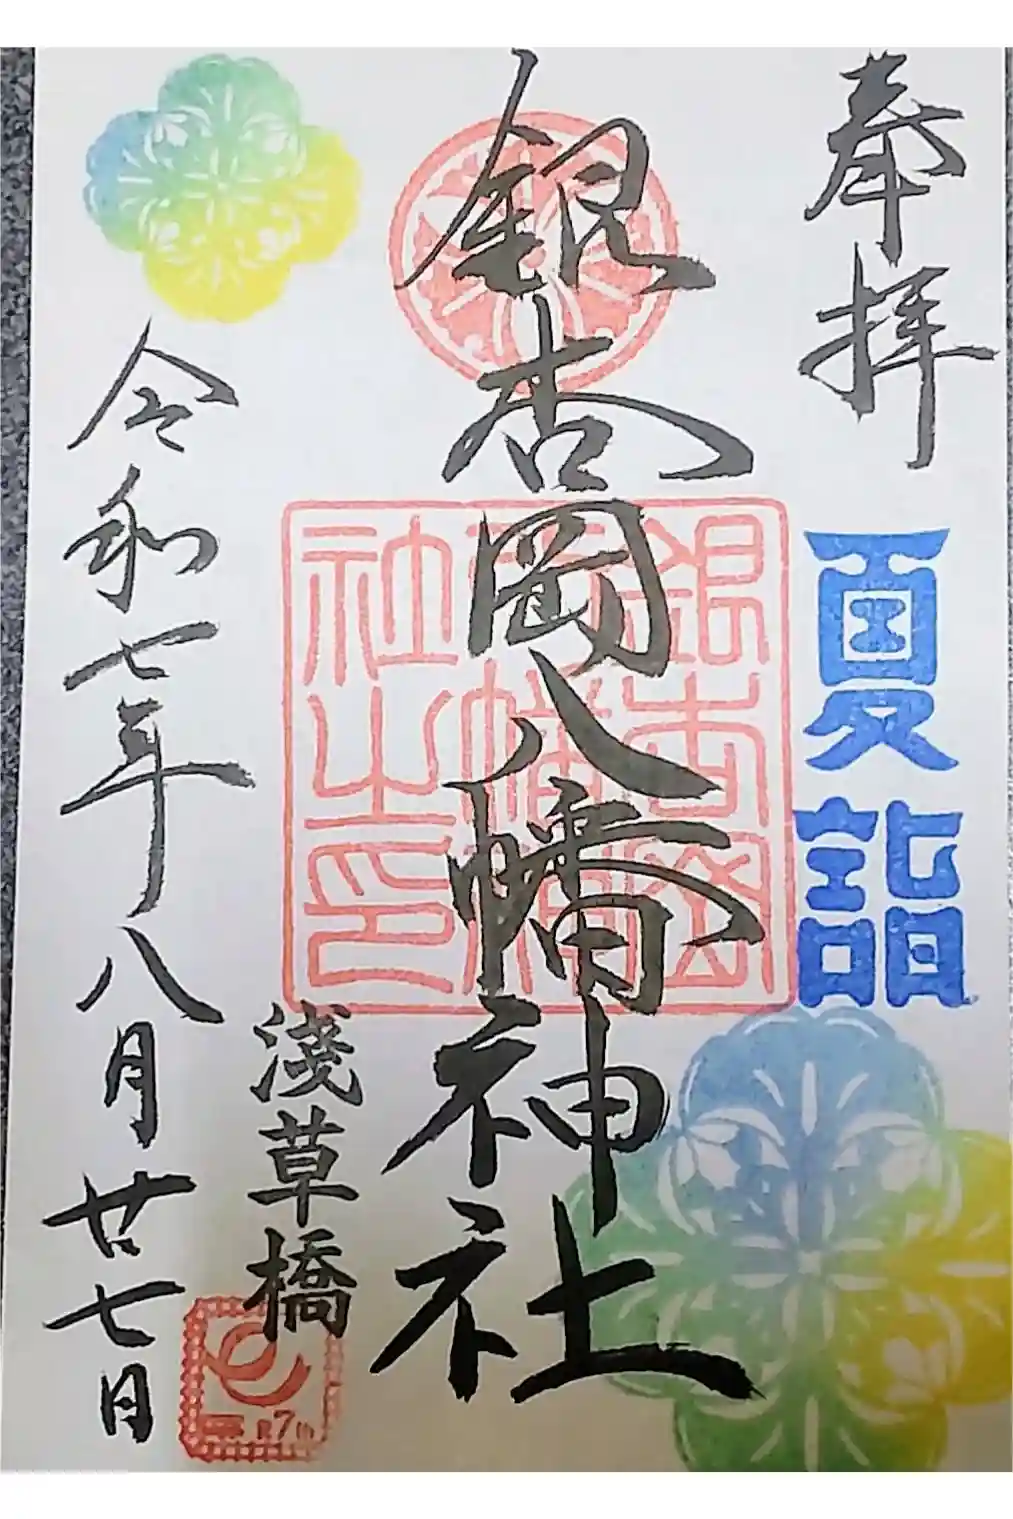 奉拝
夏詣
銀杏岡八幡神社
銀杏岡
八幡神
社之印
浅草橋
R7
令和七年八月廿七日